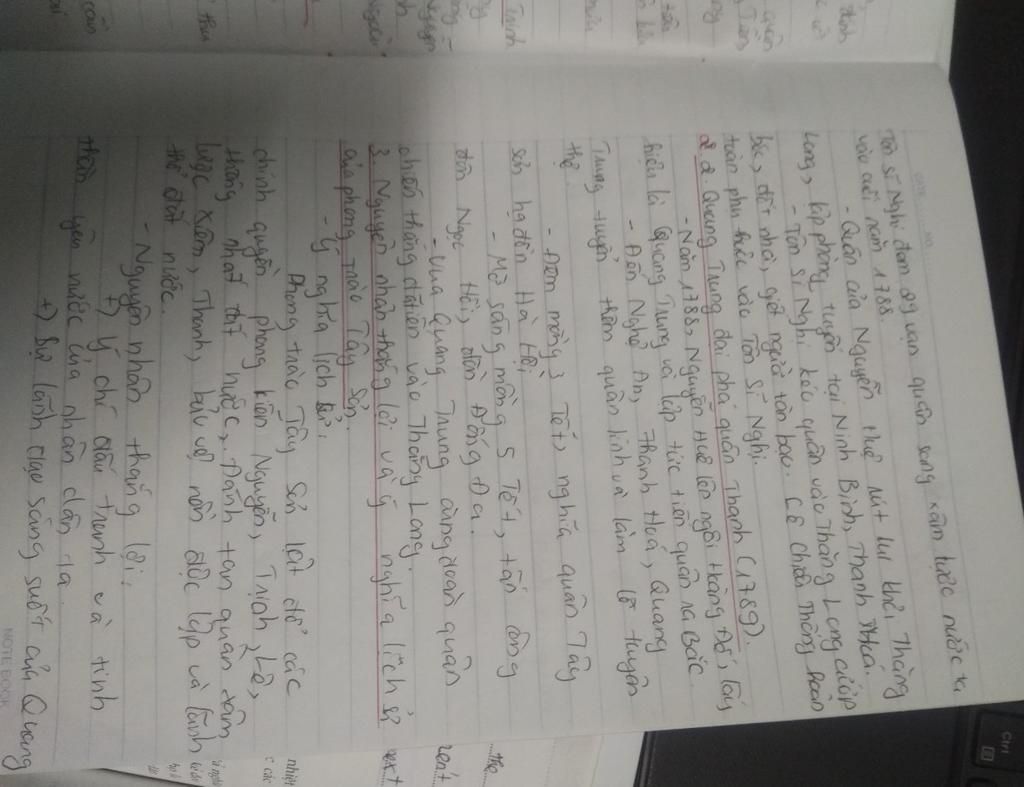 Tôn Sĩ Nghị đem 29 vạn quân sang xâm lược nước ta
vào cuối năm 1788.
- Quân của Nguyễn Huệ rút lui khỏi Thăng
Long, lập phòng tuyến tại Ninh Bình, Thanh Hoá.
- Tôn Sĩ Nghị kéo quân vào Thăng Long cướp
bóc, đốt nhà, giết người tàn bạo. Lê Chiêu Thống hoàn
toàn phụ thuộc vào Tôn Sĩ Nghị.
2. Quang Trung đại phá quân Thanh (1789).
- Năm 1788, Nguyễn Huệ lên ngôi Hoàng Đế, lấy
hiệu là Quang Trung và lập tức tiến quân ra Bắc.
- Đến Nghệ An, Thanh Hoá, Quang
Trung tuyển thêm quân lính và làm lễ tuyên
thệ.
- Đêm mồng 3 Tết, nghĩa quân Tây
sơn hạ đồn Hà Hồi
- Mờ sáng mồng 5 Tết, tấn công
đồn Ngọc Hồi, đồn Đống Đa.
- Vua Quang Trung cùng đoàn quân
chiến thắng đã tiến vào Thăng Long.
3. Nguyên nhân thắng lợi và ý nghĩa lịch sử
của phong trào Tây Sơn.
- Ý nghĩa lịch sử:
Phong trào Tây Sơn lật đổ các
chính quyền phong kiến Nguyễn, Trịnh, Lê,
thống nhất đất nước. Đánh tan quân xâm
lược Xiêm, Thanh, bảo vệ nền độc lập và lãnh
thổ đất nước.
- Nguyên nhân thắng lợi:
+) Ý chí đấu tranh và tinh
thần yêu nước của nhân dân ta.
+) Sự lãnh đạo sáng suốt của Quang
NOTEBOOK
Ctrl